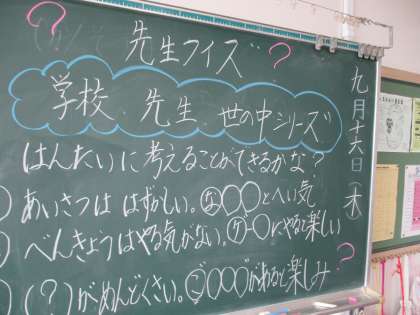 先生クイズ
?
?
学校 先生 世の中シリーズ
九月十六日(木)
はんたいに考えることができるかな?
あいさつは はずかしい。な〇〇とへい気
べんきょうはやる気がない。ゲ〇〇にやると楽しい
(?)がめんどくさい。ご〇〇〇があると楽しみ
?